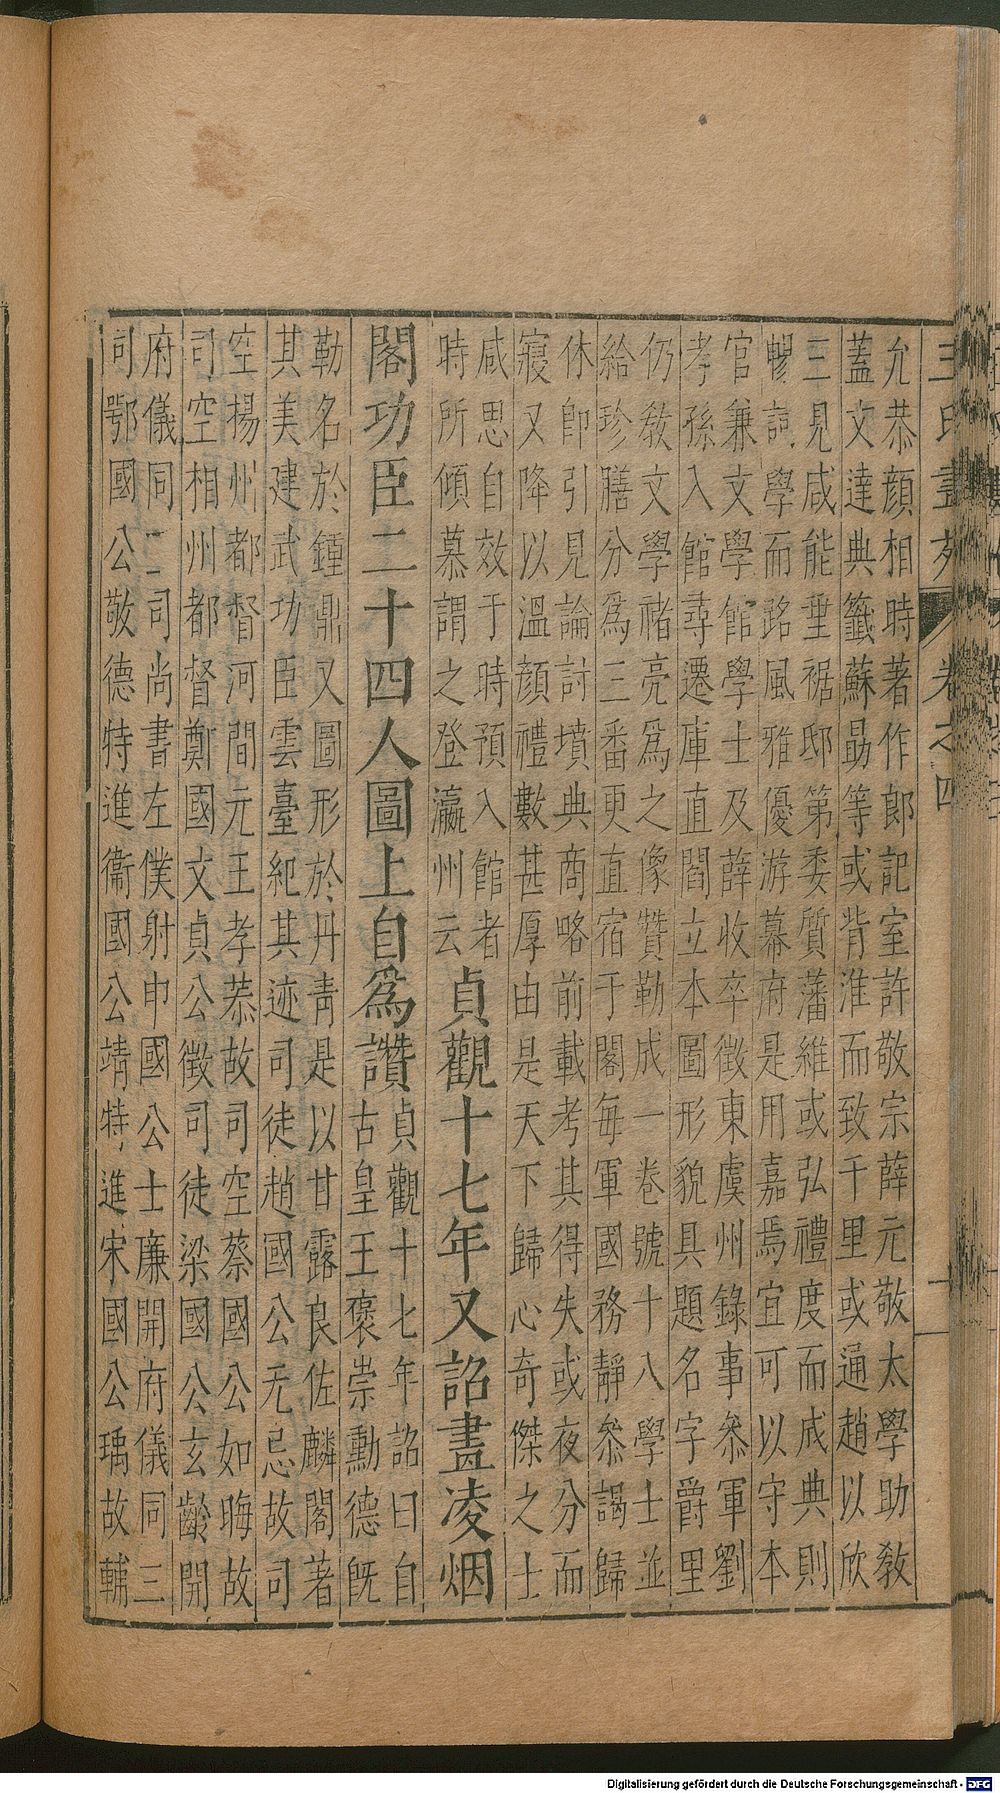 王氏畫苑 卷之四 十
允恭顔相時著作郎記室許敬宗薛元敬太學助敎
蓋文達典籤蘇勗等或背淮而致千里或通趙以欣
三見咸能垂裾邸第委質藩維或弘禮度而成典則
暢詞學而詻風雅優游幕府是用嘉焉宜可以守本
官兼文學館學士及薛收卒徵東虞州錄事叅軍劉
孝孫入館尋遷庫直閻立本圖形貌具題名字爵里
仍敎文學禇亮爲之像贊勒成一卷號十八學士並
給珍膳分爲三番更直宿于閣每軍國務靜叅謁歸
休即引見論討墳典商略前載考其得失或夜分而
寢又降以溫顔禮數甚厚由是天下歸心奇傑之士
咸思自效于時預入館者
時所傾慕謂之登瀛州云
貞觀十七年又詔畫凌烟
閣功臣二十四人圖上自爲讚
貞觀十七年詔曰自
古皇王褒崇勳德旣
勒名於鍾鼎又圖形於丹靑是以甘露良佐麟閣著
其美建武功臣雲臺紀其迹司徒趙國公无忌故司
空揚州都督河間元王孝恭故司空蔡國公如晦故
司空相州都督鄭國文貞公徵司徒梁國公玄齡開
府儀同三司尚書左僕射申國公士廉開府儀同三
司鄂國公敬德特進衞國公靖特進宋國公瑀故輔
Digitalisierung gefördert durch die Deutsche Forschungsgemeinschaft - DFG